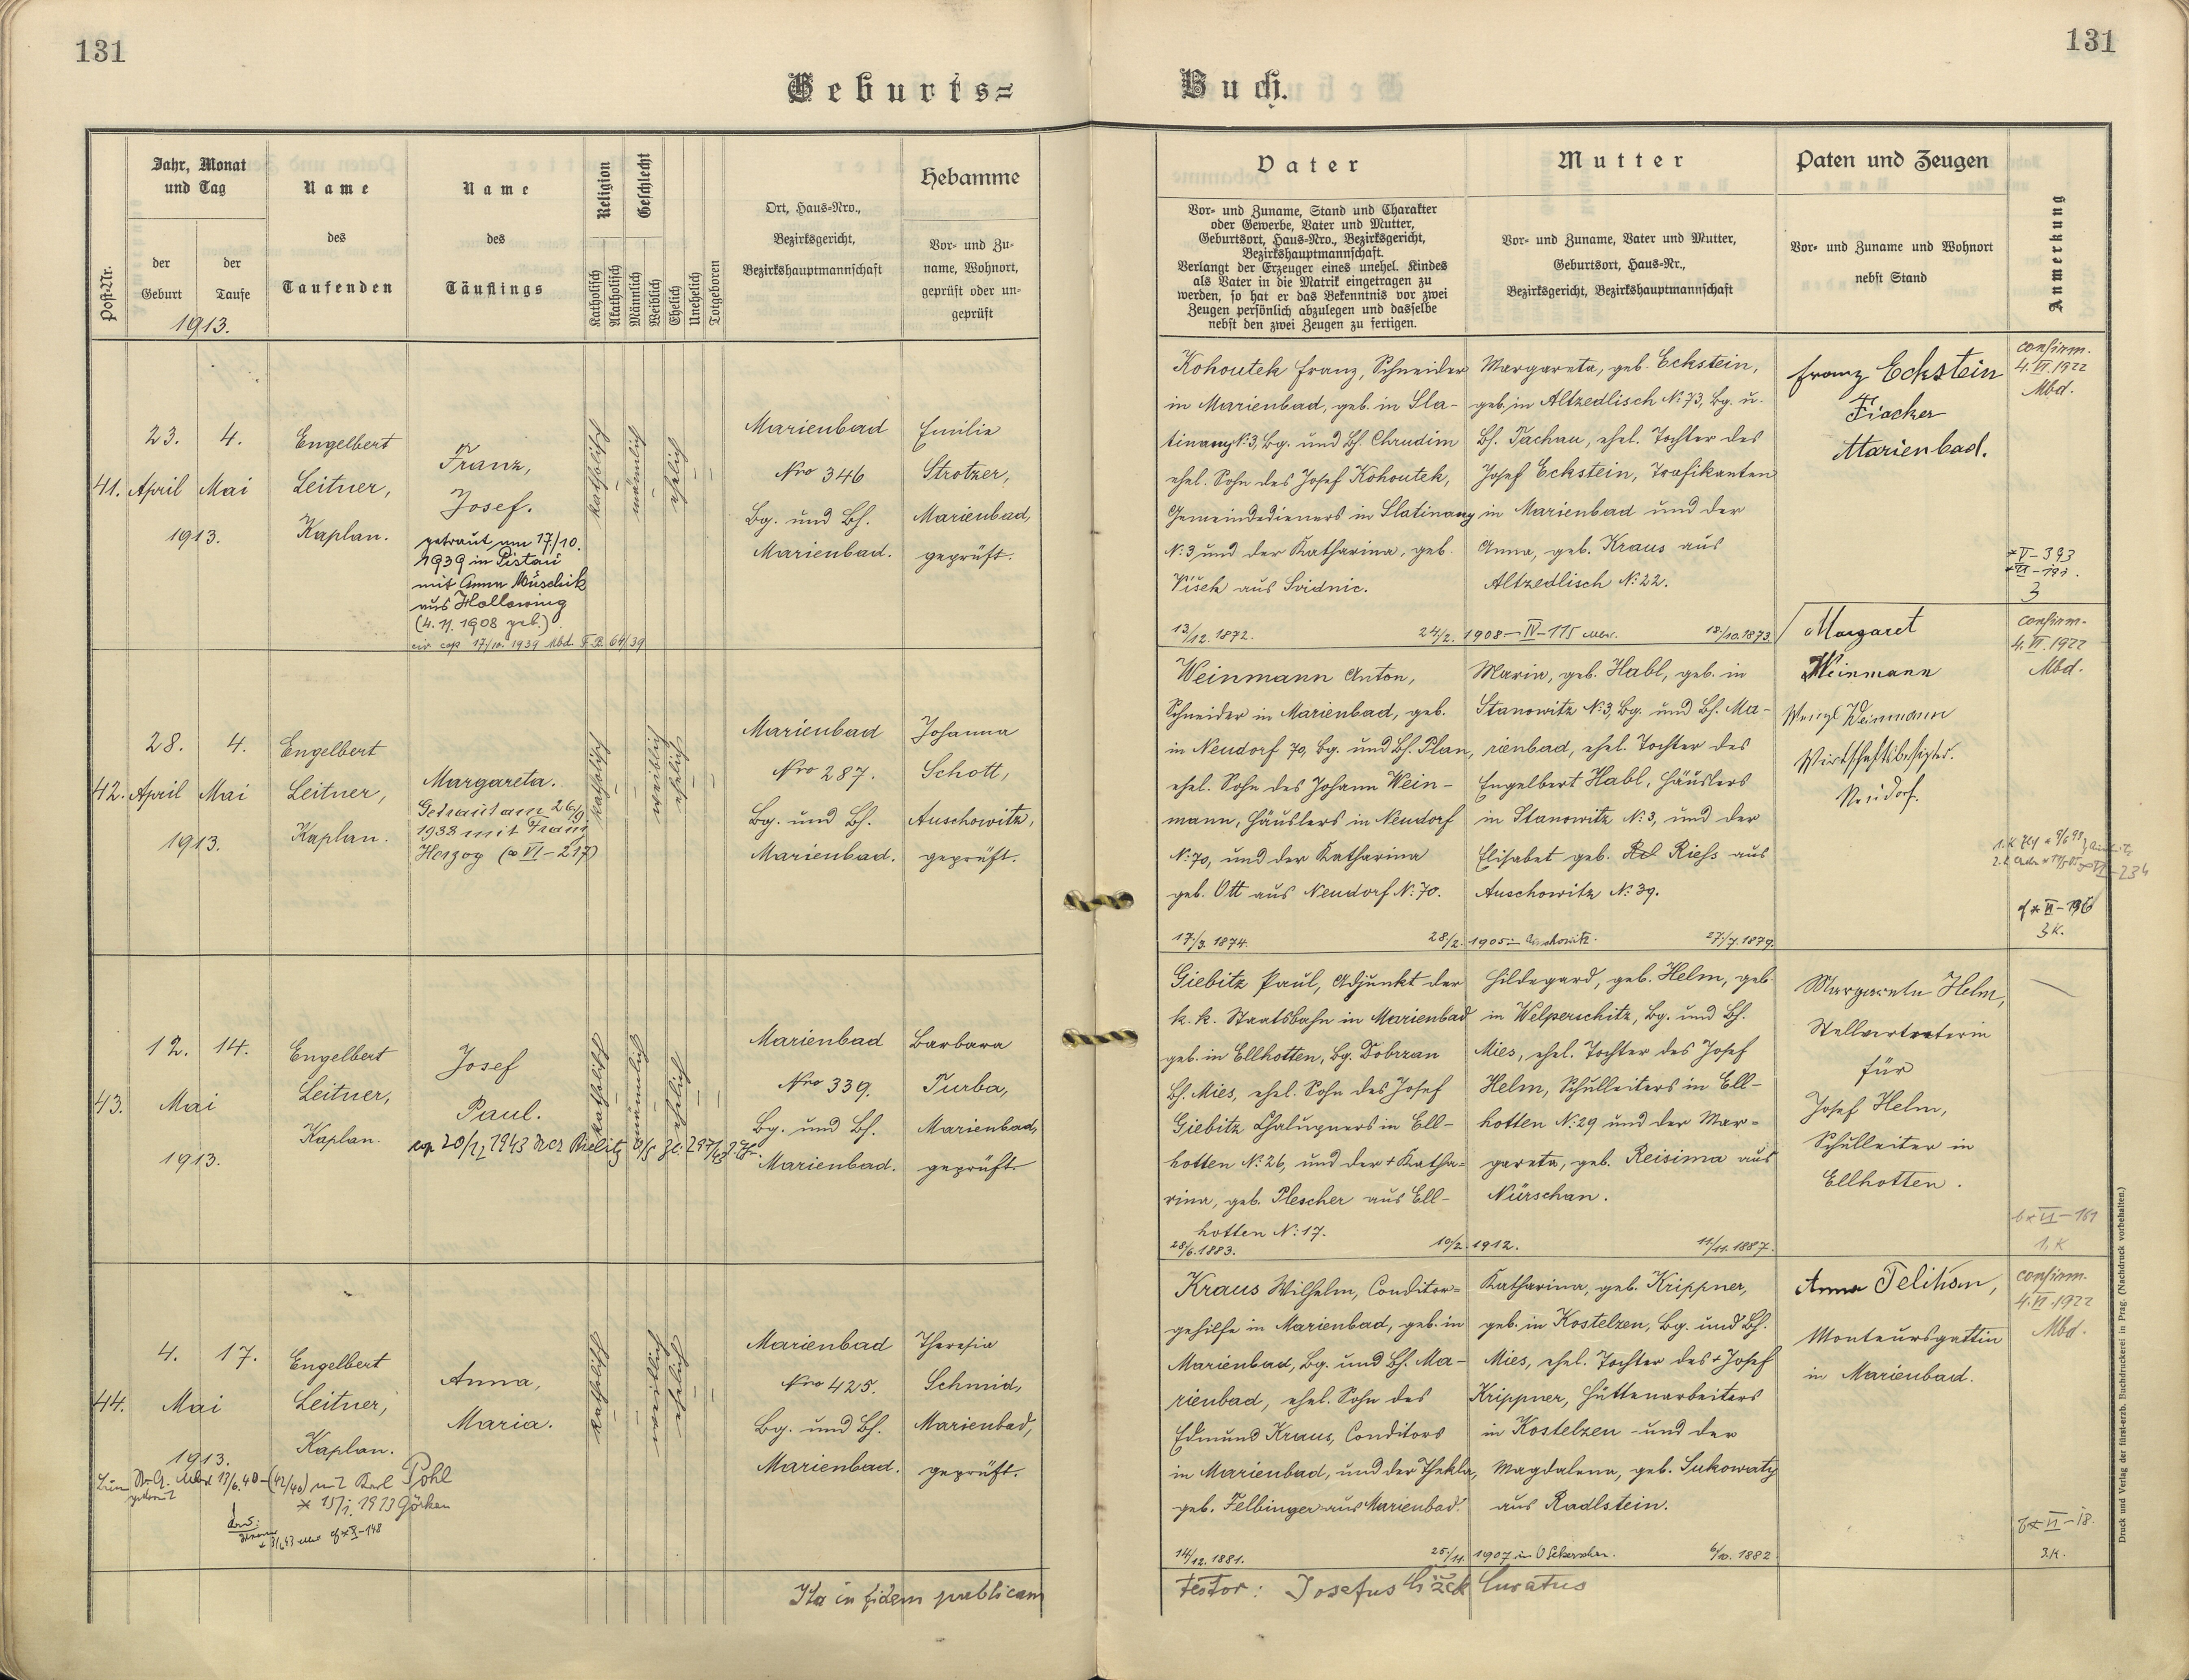 131
131
Geburts=
Buch.
Post-Nr.
Jahr, Monat
und Tag
der
Geburt
der
Taufe
1913.
Name
des
Taufenden
Name
des
Täuflings
Religion
Katholisch
Akatholisch
Geschlecht
Männlich
Weiblich
Ehelich
Unehelich
Totgeboren
Ort, Haus-Nro.,
Bezirksgericht,
Bezirkshauptmannschaft
Hebamme
Vor- und Zu-
name, Wohnort,
geprüft oder un-
geprüft
Vater
Vor- und Zuname, Stand und Charakter
oder Gewerbe, Vater und Mutter,
Geburtsort, Haus-Nro., Bezirksgericht,
Bezirkshauptmannschaft.
Verlangt der Erzeuger eines unehel. Kindes
als Vater in die Matrik eingetragen zu
werden, so hat er das Bekenntnis vor zwei
Zeugen persönlich abzulegen und dasselbe
nebst den zwei Zeugen zu fertigen.
Mutter
Vor- und Zuname, Vater und Mutter,
Geburtsort, Haus-Nr.,
Bezirksgericht, Bezirkshauptmannschaft
Paten und Zeugen
Vor- und Zuname und Wohnort
nebst Stand
Anmerkung
41.
23.
April
4.
Mai
1913.
Engelbert
Leitner,
Kaplan.
Franz,
Josef.
getraut am 17./10.
1939 in Pistau
mit Anna Müschik
aus Hollewing
(4. 11. 1908 geb.)
civ cop 17/10. 1939 Mbd. F.B. 64/39
katholisch
männlich
ehelich
Marienbad
Nro 346
Bg. und Bh.
Marienbad.
Emilie
Strotzer,
Marienbad,
geprüft.
Kohoutek Franz, Schneider
in Marienbad, geb. in Sla-
tinany N: 3, Bg. und Bh. Chrudim
ehel. Sohn des Josef Kohoutek,
Gemeindedieners in Slatinany
N: 3 und der Katharina, geb.
Víšek aus Svidnic.
13/12. 1872.
24/2. 1908 – IV – 115
Margareta, geb. Eckstein,
geb. in Altzedlisch N: 73, Bg. u.
Bh. Tachau, ehel. Tochter des
Josef Eckstein, Trafikanten
in Marienbad und der
Anna, geb. Kraus aus
Altzedlisch N: 22.
18./10. 1873.
Franz Eckstein
Fiacker
Marienbad.
confirm.
4. VI. 1922
Mbd.
V – 393
3
42.
28.
April
4.
Mai
1913.
Engelbert
Leitner,
Kaplan.
Margareta.
Getraut am 26/9
1938 mit Franz
Herzog (∞ VI – 217)
katholisch
weiblich
ehelich
Marienbad
Nro 287.
Bg. und Bh.
Marienbad.
Johanna
Schott,
Auschowitz,
geprüft.
Weinmann Anton,
Schneider in Marienbad, geb.
in Neudorf 70, Bg. und Bh. Plan,
ehel. Sohn des Johann Wein-
mann, Häuslers in Neudorf
N: 70, und der Katharina
geb. Ott aus Neudorf N: 70.
17./3. 1874.
28/2. 1905 – Auschowitz.
Maria, geb. Habl, geb. in
Stanowitz N: 3, Bg. und Bh. Ma-
rienbad, ehel. Tochter des
Engelbert Habl, Häuslers
in Stanowitz N: 3, und der
Elisabet geb. Riehs aus
Auschowitz N: 39.
27./7. 1879.
Margaret
Weinmann
Wenzl Weinmann
Wirtschaftsbesitzer.
Neudorf.
confirm-
4. VI. 1922
Mbd.
3 K.
43.
12.
14.
Mai
1913.
Engelbert
Leitner,
Kaplan.
Josef
Paul.
katholisch
männlich
ehelich
Marienbad
Nro 339.
Bg. und Bh.
Marienbad.
Barbara
Turba,
Marienbad,
geprüft.
Giebitz Paul, Adjunkt der
k. k. Staatsbahn in Marienbad
geb. in Ellhotten, Bg. Dobrzan
Bh. Mies, ehel. Sohn des Josef
Giebitz Chalupners in Ell-
hotten N: 26, und der + Katha=
rina, geb. Plescher aus Ell-
hotten N: 17.
28/6. 1883.
10/2. 1912.
Hildegard, geb. Helm, geb.
in Welperschitz, Bg. und Bh.
Mies, ehel. Tochter des Josef
Helm, Schulleiters in Ell-
hotten N: 29 und der Mar=
gareta, geb. Reisima aus
Nürschan.
11/11. 1887.
Margareta Helm,
Stellvertreterin
für
Josef Helm,
Schulleiter in
Ellhotten.
1, K
44.
4.
17.
Mai
1913.
Engelbert
Leitner,
Kaplan.
Anna,
Maria.
katholisch
weiblich
ehelich
Marienbad
Nro 425.
Bg. und Bh.
Marienbad.
Theresia
Schmid,
Marienbad,
geprüft.
Kraus Wilhelm, Conditor=
gehilfe in Marienbad, geb. in
Marienbad, Bg. und Bh. Ma-
rienbad, ehel. Sohn des
Edmund Kraus, Conditors
in Marienbad, und der Thekla,
geb. Felbinger aus Marienbad.
14/12. 1881.
25./11. 1907
Katharina, geb. Krippner,
geb. in Kostelzen, Bg. und Bh.
Mies, ehel. Tochter des + Josef
Krippner, Hüttenarbeiters
in Kostelzen und der
Magdalena, geb. Sukowaty
aus Radlstein.
6/10. 1882
Anna
Monteursgattin
in Marienbad.
confirm.
4. VI. 1922
Mbd.
3. K.
Pohl
Ita in fidem publicam
testor: Josefus Curatus
Druck und Verlag der fürst-erzb. Buchdruckerei in Prag. (Nachdruck vorbehalten.)